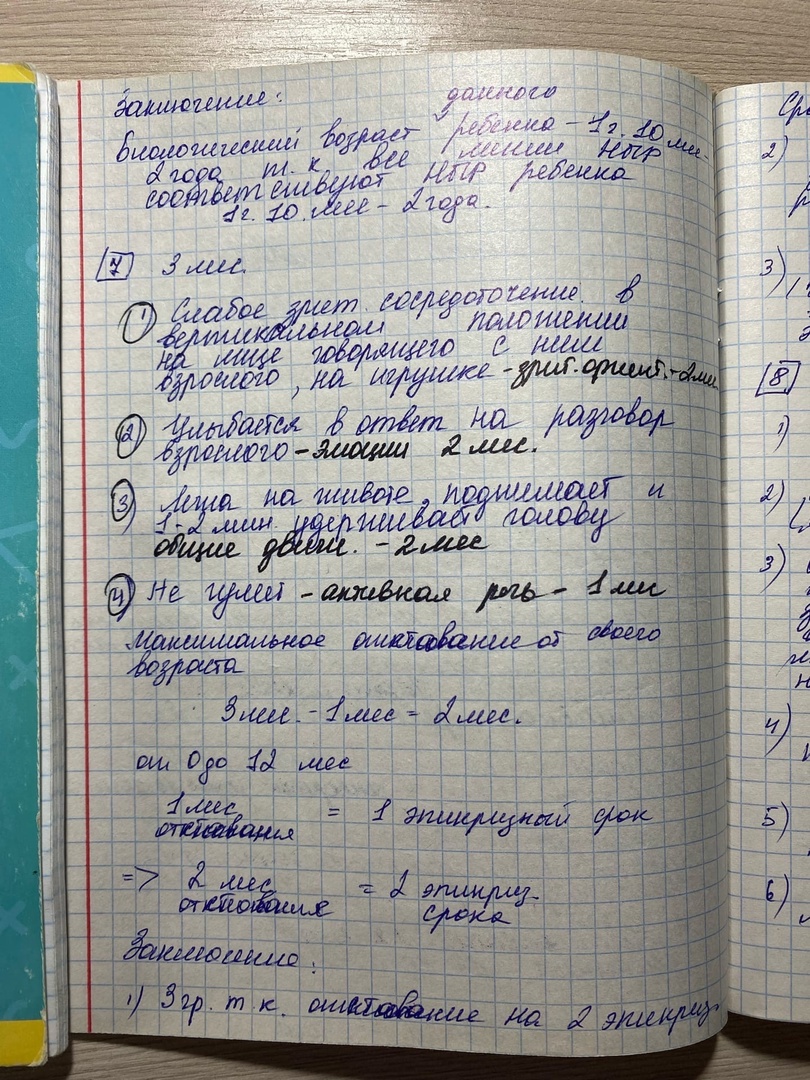 Заключение:
Биологический возраст данного ребенка – 1г. 10 мес-
2 года т. к все линии НПР
соответствуют НПР ребенка
1г. 10. мес – 2 года.
7 3 мес.
1) Слабое зрит. сосредоточение в
вертикальном положении
на лице говорящего с ним
взрослого, на игрушке – зрит. ориент. – 2 мес
2) Улыбается в ответ на разговор
взрослого – эмоции 2 мес.
3) Лежа на животе, поднимает и
1-2 мин. удерживает голову
общие движ. – 2 мес
4) Не гулит – активная речь – 1 мес
Максимальное отставание от своего
возраста
3 мес. – 1 мес = 2 мес.
от 0 до 12 мес
1 мес отставания = 1 эпикризный срок
=> 2 мес отставания = 2 эпикриз. срока
Заключение:
1) 3 гр. т. к. отставание на 2 эпикриз.
2)
3)
8
1)
2)
3)
4)
5)
6)